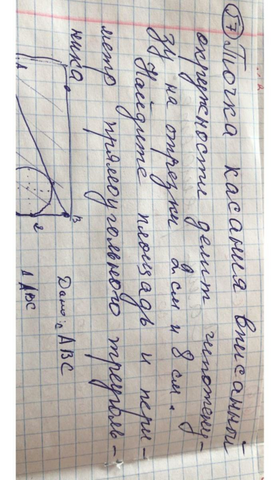 17 Точка касания вписанной
окружности делит гипотену-
зу на отрезки 2 см и 8 см.
Найдите площадь и пери-
метр прямоугольного треуголь-
ника
Дано: ABC
Δ ABC
A
B
2